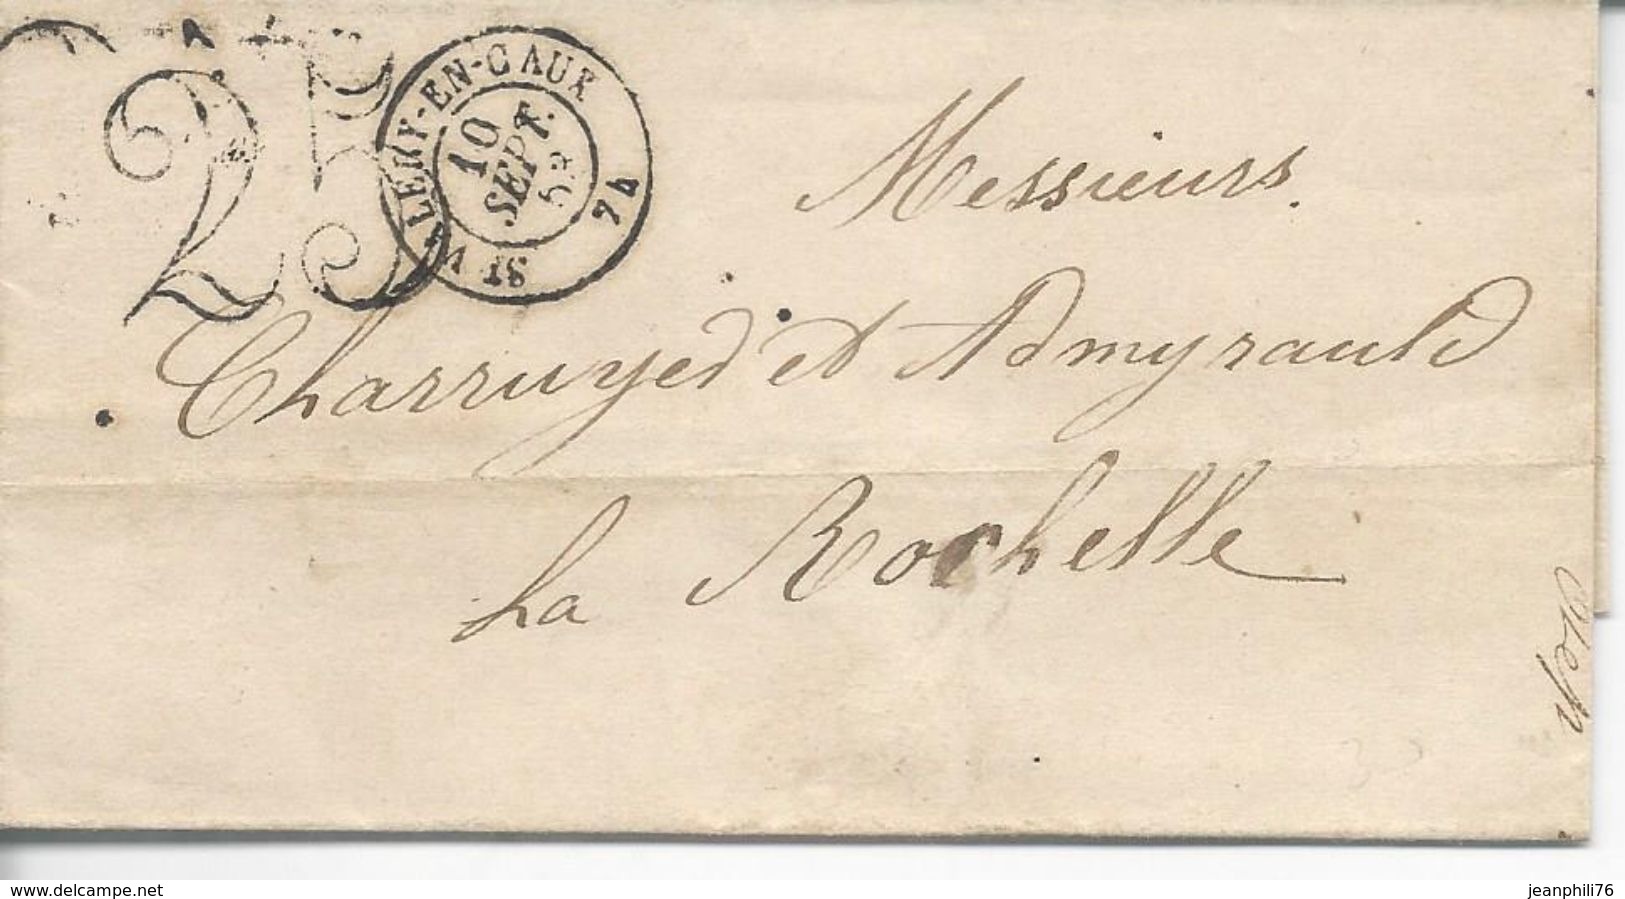 25
ST VALERY-EN-CAUX
10
SEPT.
53
74
Messieurs.
Charruyer et Admyrauld
La Rochelle
www.delcampe.net
jeanphili76